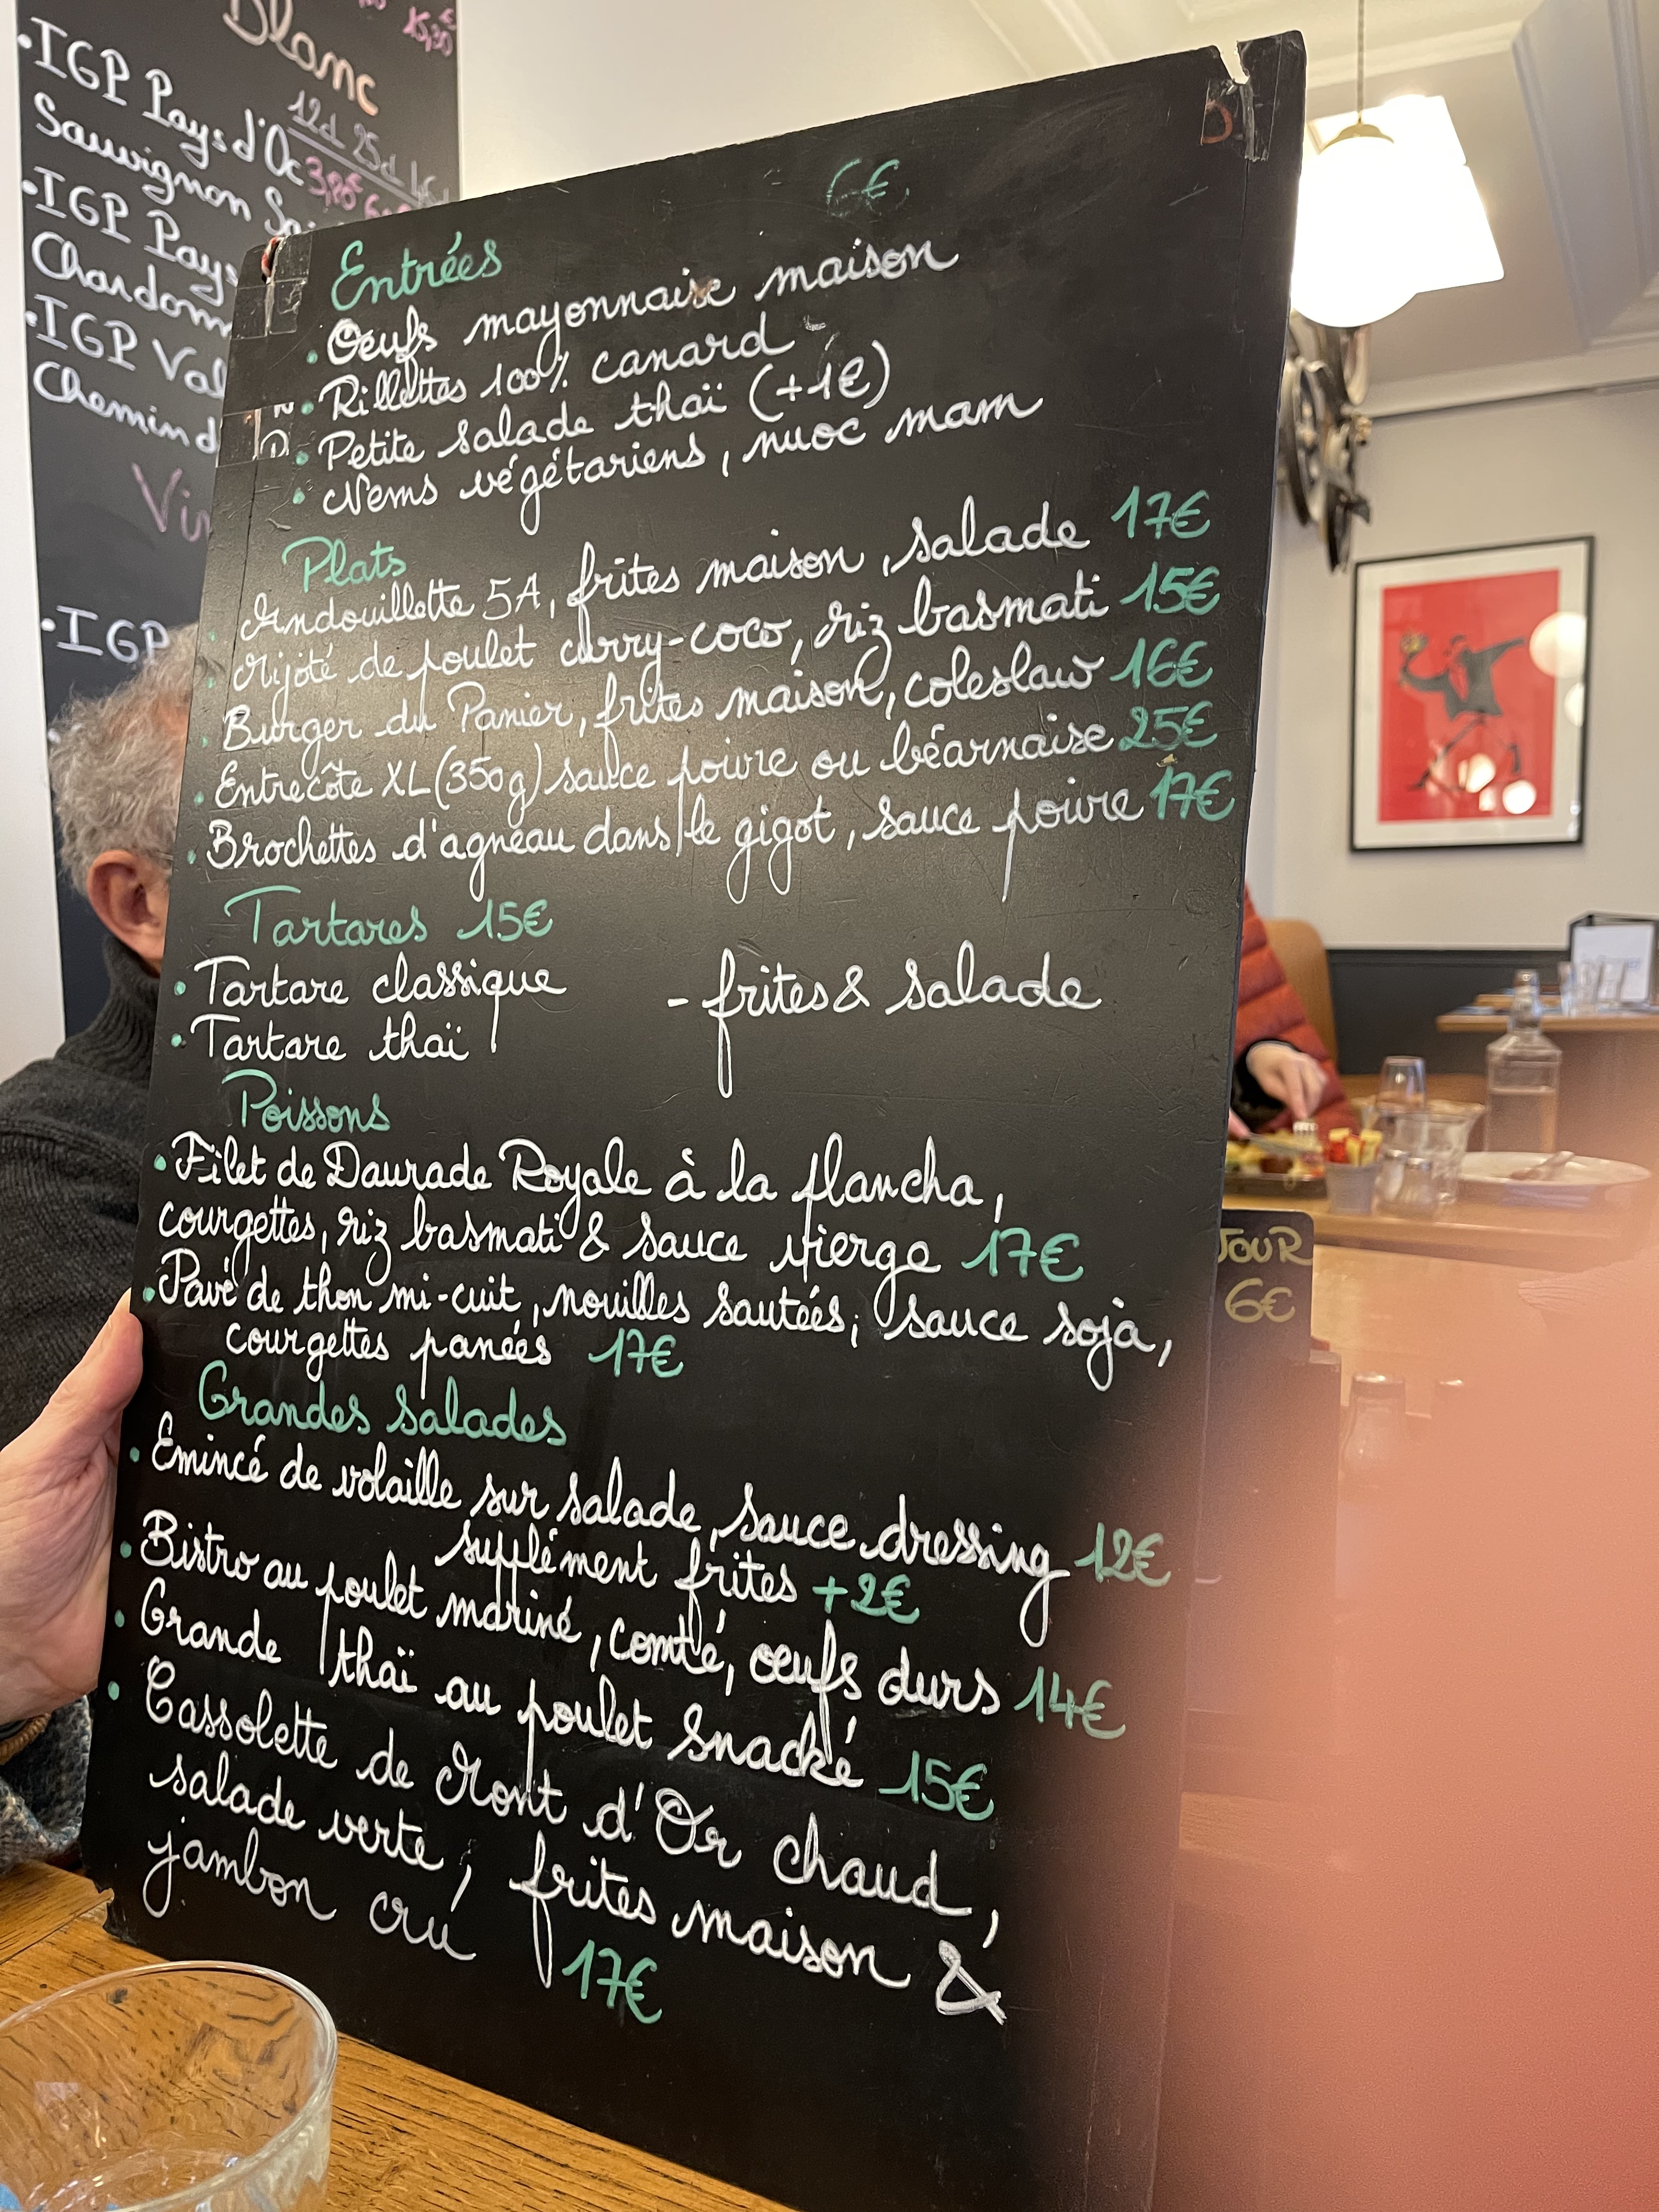 Blanc
15,30€
12cl 25cl
• IGP Pays d'Oc 3,80€
Sauvignon
• IGP Pays
• IGP Val
Chemin d
• IGP
6€
Entrées
• Oeufs mayonnaise maison
• Rillettes 100% canard
• Petite salade thaï (+1€)
• Nems végétariens, nuoc mam
Plats
• Andouillette 5A, frites maison, salade 17€
• Mijoté de poulet curry-coco, riz basmati 15€
• Burger du Panier, frites maison, coleslaw 16€
• Entrecôte XL (350g) sauce poivre ou béarnaise 25€
• Brochettes d'agneau dans le gigot, sauce poivre 17€
Tartares 15€
• Tartare classique - frites & salade
• Tartare thaï
Poissons
• Filet de Daurade Royale à la plancha,
courgettes, riz basmati & sauce vierge 17€
• Pavé de thon mi-cuit, nouilles sautées, sauce soja,
courgettes panées 17€
Grandes salades
• Emincé de volaille sur salade, sauce dressing 12€
supplément frites +2€
• Bistro au poulet mariné, comté, oeufs durs 14€
• Grande thaï au poulet snacké 15€
• Cassolette de Mont d'Or chaud,
salade verte, frites maison &
jambon cru 17€
JOUR
6€